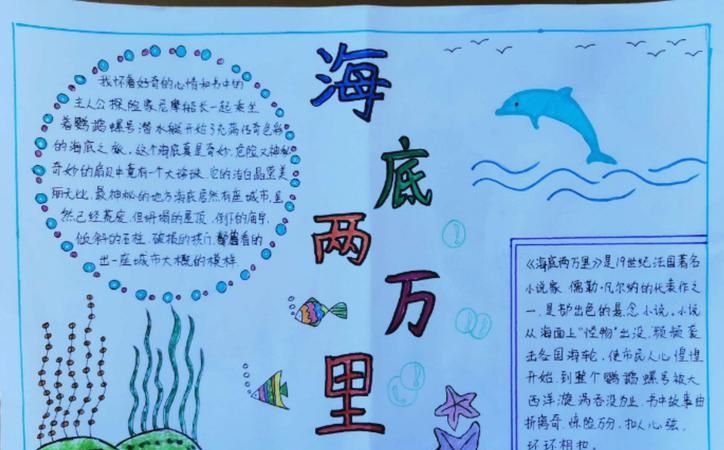 海底两万里
我怀着好奇的心情和书中的
主人公探险家尼摩船长一起乘坐
着鹦鹉螺号潜水艇开始了充满传奇色彩
的海底之旅。这个海底真是奇妙、危险又神秘
奇妙的扇贝中竟有一个大珍珠，它的洁白晶莹美
丽无比，最神秘的地方海底居然有座城市，虽
然已经荒废，但坍塌的屋顶，倒下的庙宇，
倾斜的石柱，破损的拱门，看的
出一座城市大概的模样。
《海底两万里》是19世纪法国著名
小说家儒勒·凡尔纳的代表作之
一，是部出色的悬念小说。小说
从海面上"怪物"出没，频频袭
击各国海轮，使市民人心惶惶
开始，到整个鹦鹉螺号被大
西洋漩涡吞没为止，书中故事曲
折离奇，惊险万分，扣人心弦，
环环相扣。